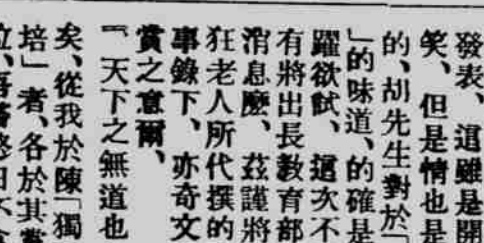 發表、這雖是開
笑、但是情也是
的、胡先生對於「
」的味道、的確是
躍欲試、這次不
有將出長教育部
消息麼、茲謹將
狂老人所代撰的
事錄下、亦奇文
賞之意爾、
『天下之無道也
矣、從我於陳「獨
培」者、各於其黨